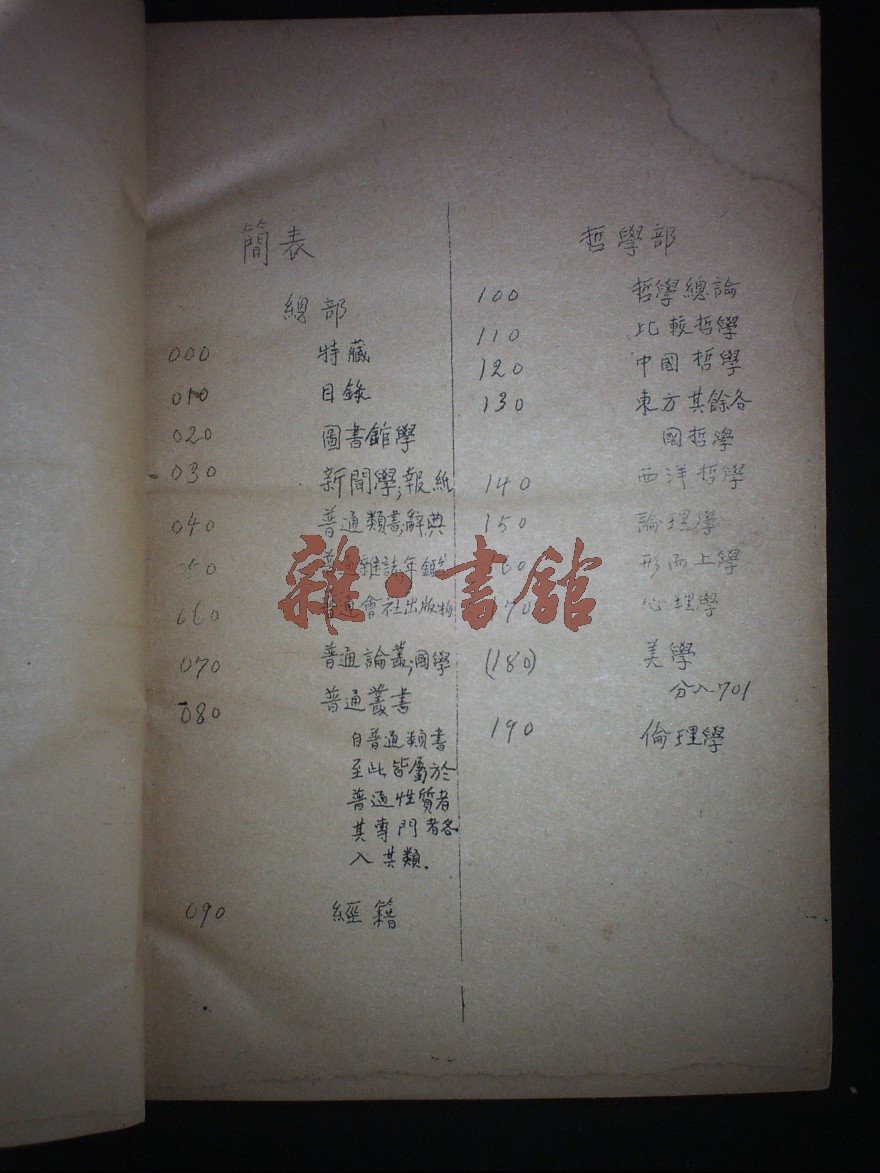 簡表
總部
000 特藏
010 目錄
020 圖書館學
030 新聞學;報紙
040 普通類書;辭典
50 普通雜誌;年鑑
060 普通會社出版物
070 普通論叢;國學
080 普通叢書
自普通類書
至此皆屬於
普通性質者
其專門者各
入其類.
090 經籍
哲學部
100 哲學總論
110 比較哲學
120 中國哲學
130 東方其餘各
國哲學
140 西洋哲學
150 論理學
60 形而上學
70 心理學
(180) 美學
分入701
190 倫理學
雜·書館